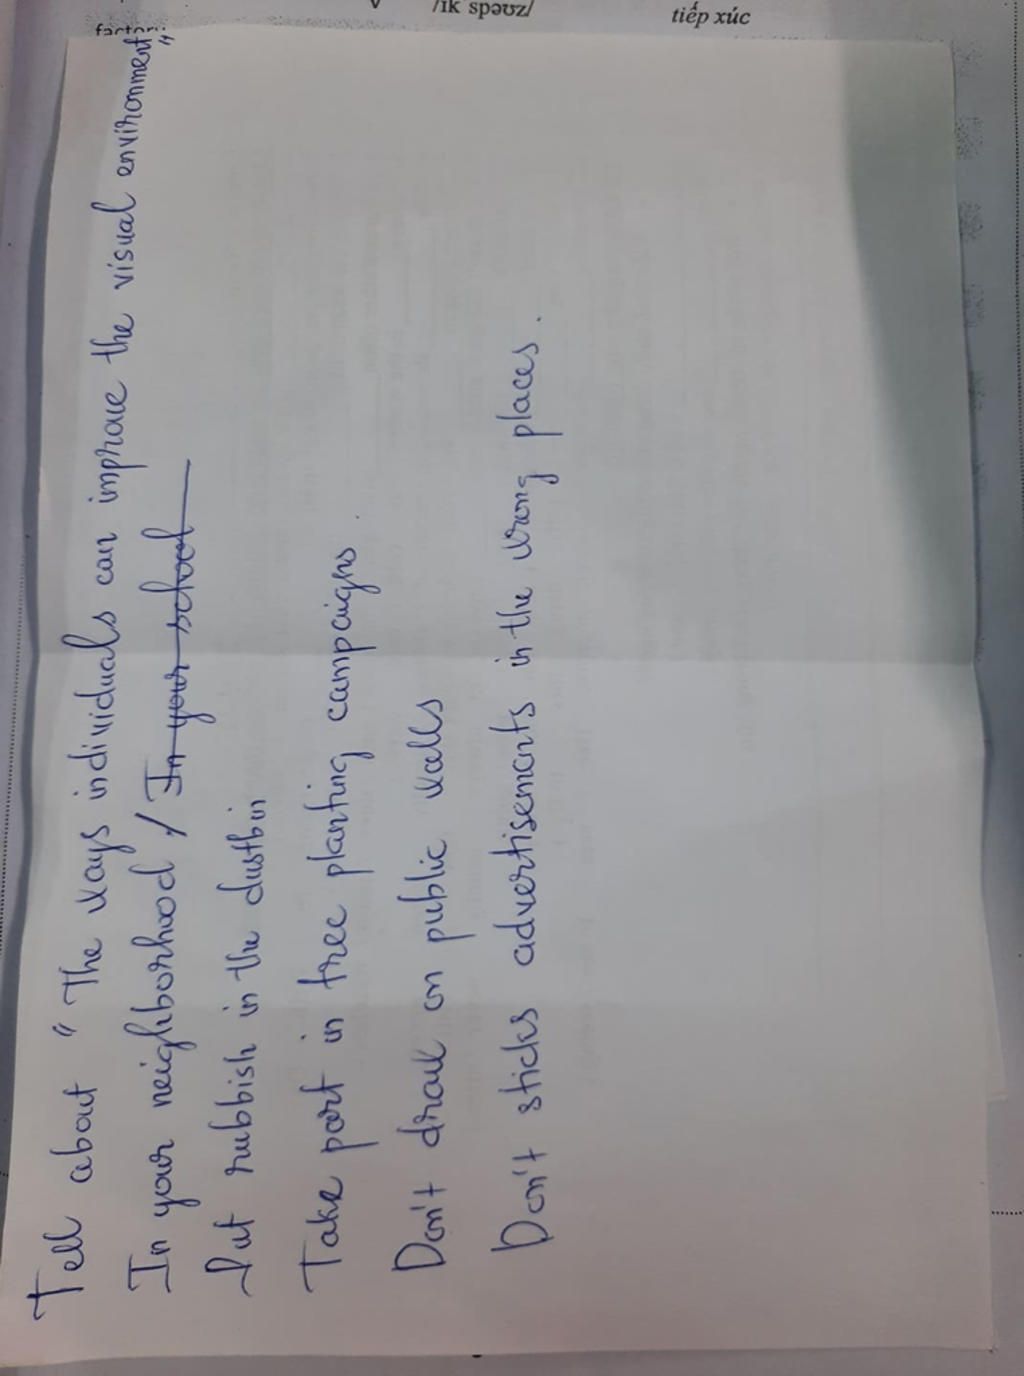 v /ɪk spəʊz/ tiếp xúc
factory
Tell about "The ways individuals can improve the visual environment"
In your neighborhood / In your school
Put rubbish in the dustbin
Take part in tree planting campaigns.
Don't draw on public walls
Don't sticks advertisements in the wrong places.